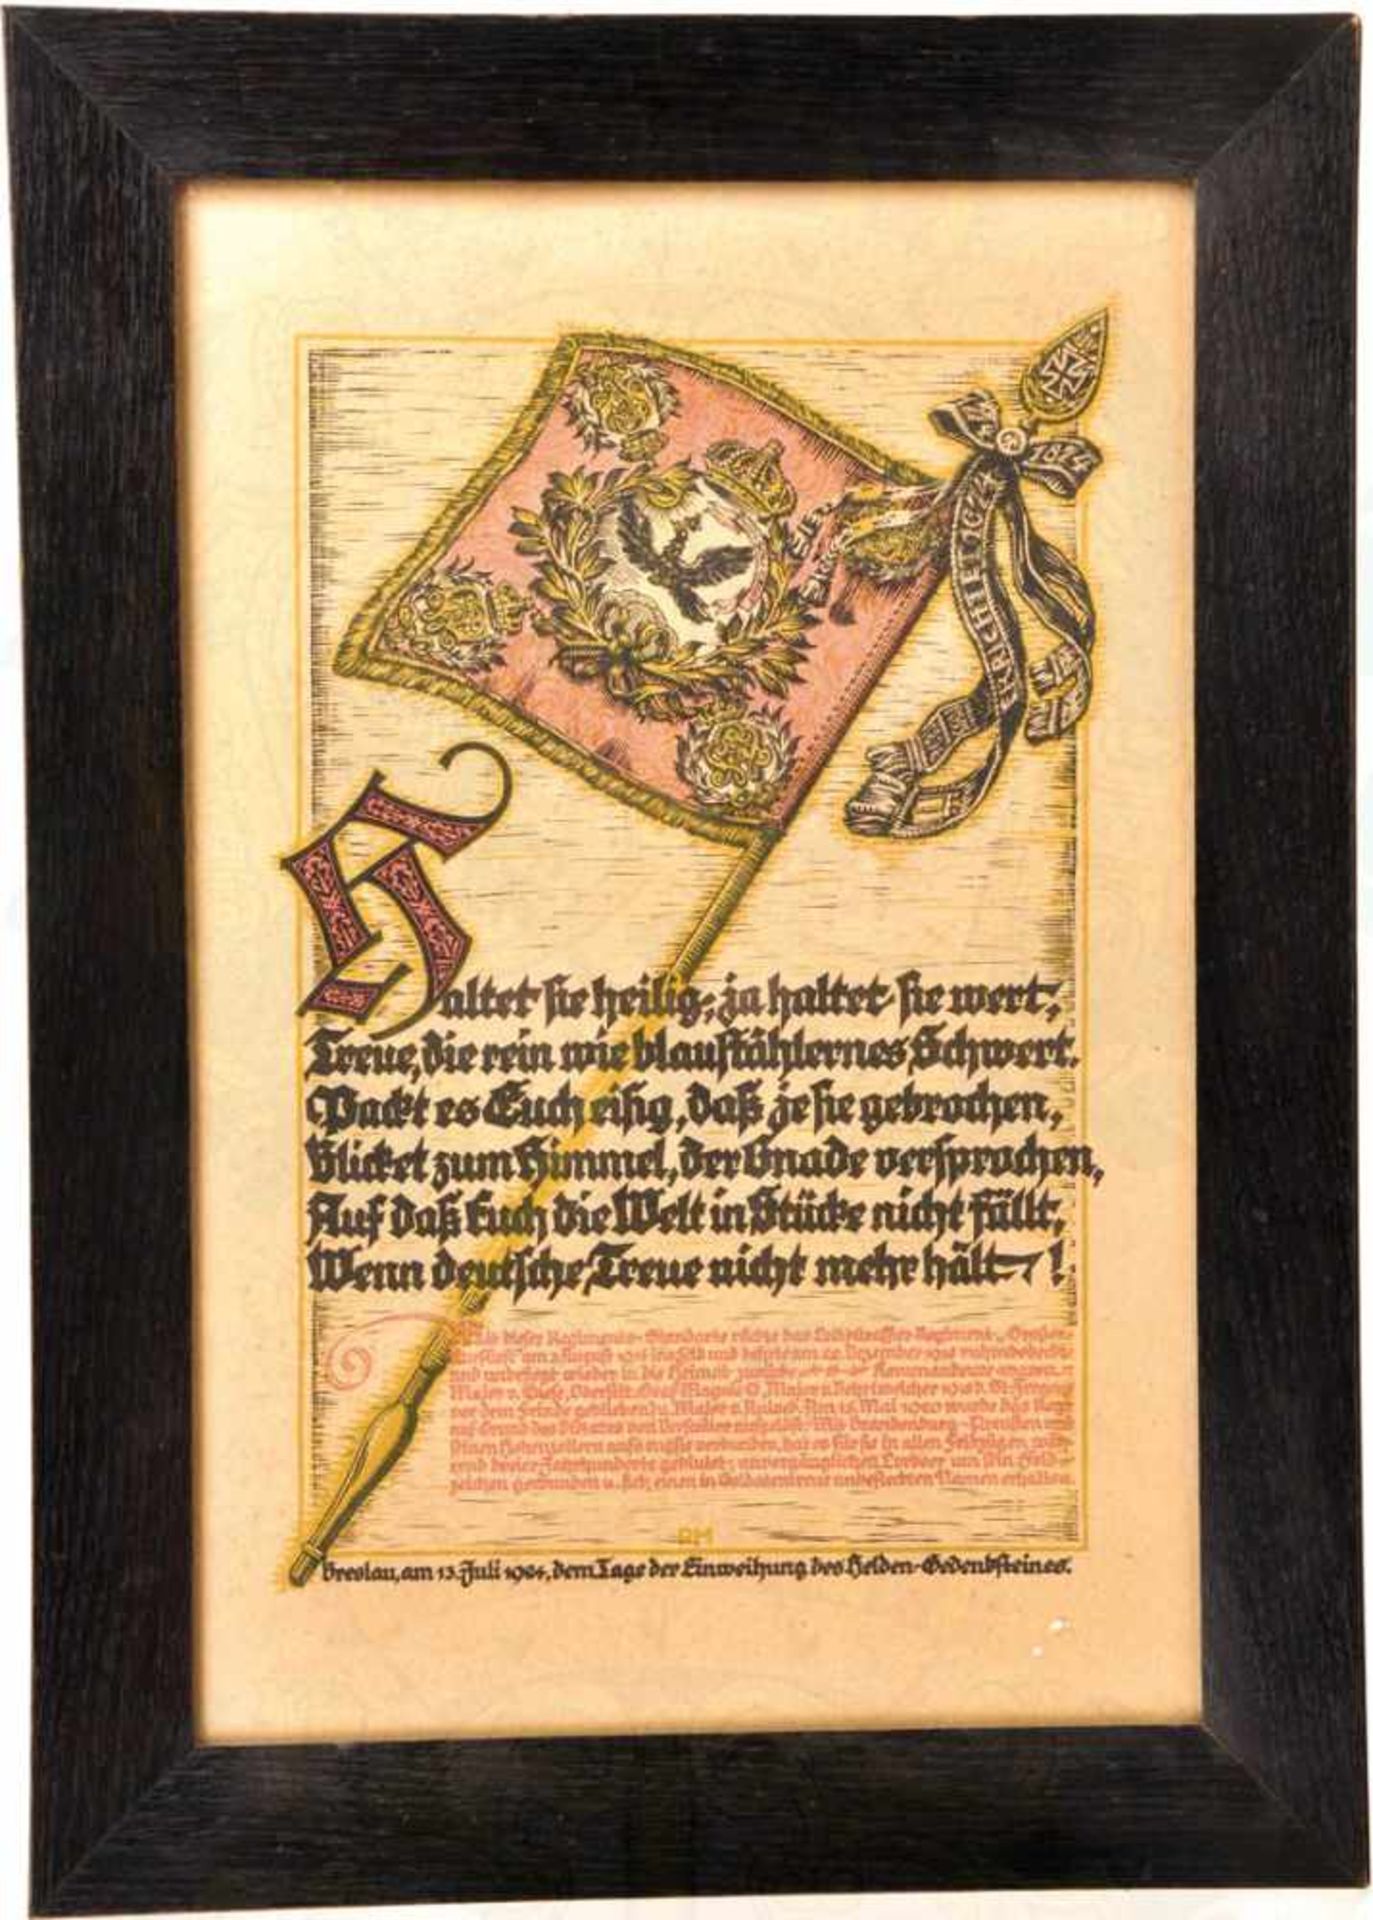 1674
1814
ERRICHTET 1674
Haltet sie heilig, ja haltet sie wert,
Treue, die rein wie blaustählernes Schwert.
Packt es Euch eisig, daß je sie gebrochen,
Blicket zum Himmel, der Gnade versprochen,
Auf daß Euch die Welt in Stücke nicht fällt,
Wenn deutsche Treue nicht mehr hält!
dieser Regiments-Standarte rückte das Leib-Kürassier-Regiment „Großer
Kurfürst“ am 2. August 1914 ins Feld und kehrte am Dezember 1918 ruhmbedeckt
und unbesiegt wieder in die Heimat zurück
Major v. Oberstlt. Graf Magnis Major v.
vor dem Feinde geblieben u. Major v. Am 15. Mai 1920 wurde das Regt.
auf Grund des Diktates von Versailles aufgelöst. Mit Brandenburg-Preußen und
seinen Hohenzollern aufs engste verbunden, hat es für sie in allen Feldzügen, wäh-
rend dreier Jahrhunderte geblutet, unvergänglichen Lorbeer um sein Feld-
zeichen gewunden u. sich einen in Soldatentreue unbefleckten Namen erhalten.
AM
Breslau, am 13. Juli 1924, dem Tage der Einweihung des Helden-Gedenksteines.